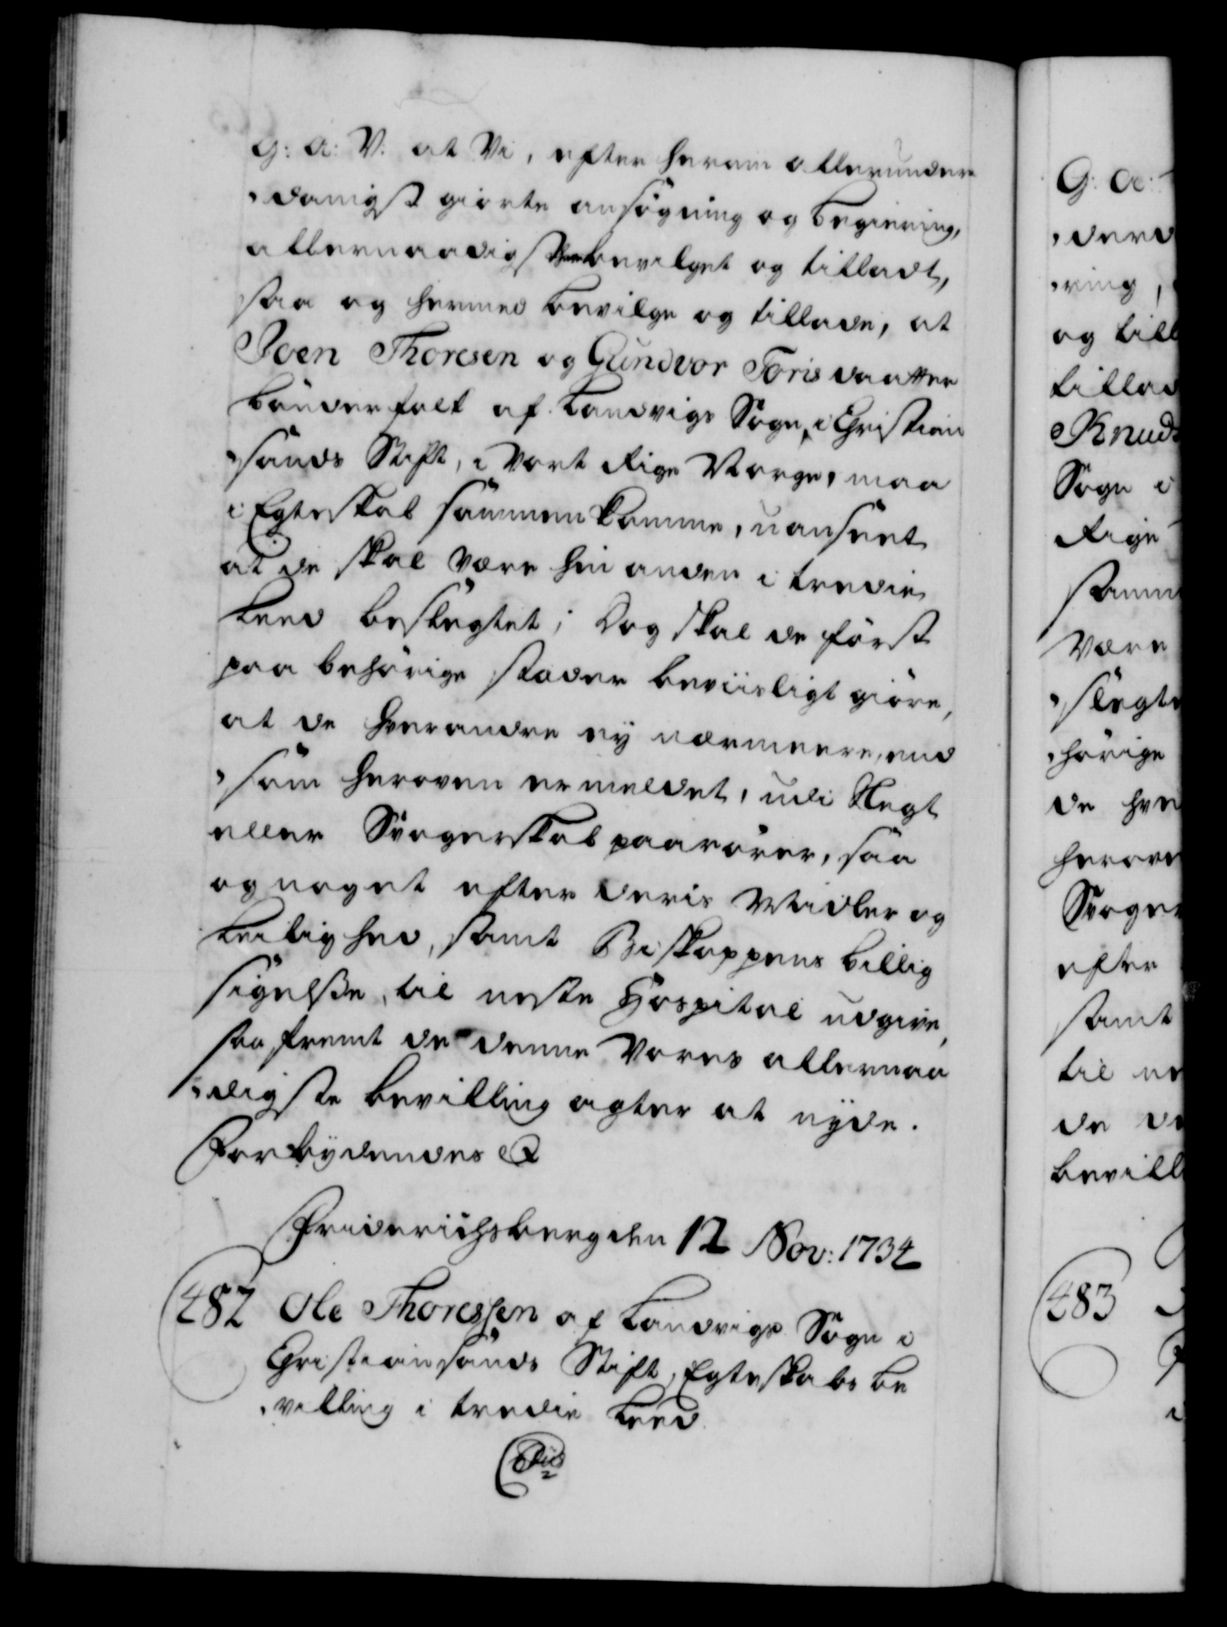 G: A: V. at Vi, efter herom allerunder
danigst giorte ansøgning og begiering,
allernaadigst bevilget og tilladt,
saa og hermed bevilge og tillade, at
Joen Thoresen og Gundvor Toris daatter
bønderfolk af Landvigs Sogn, i Christian
sands Stift, i Vort Rige Norge, maa
i Egteskab sammen komme, uanseet
at de skal være hin anden i tredie
Leed beslegtet; Dog skal de først
paa behørige stæder beviisligt giøre,
at de hverandre ey nærmeere, end
som heroven er meldet, udi Slegt
eller Svogerskab paarører, saa
og noget efter deris Midler og
Leilighed, samt Biskoppens billig
sigelsse, til neste Hospital udgive,
saafremt de denne Vores allernaa
digste bevilling agter at nyde.
Forbydendes
Friderichsberg den 12 Nov: 1734
482 Ole Thoressen af Landvigs Sogn i
Christiansands Stift, Egteskabs be
villing i tredie Leed.
G: A:
derd
ring,
og till
tillad
Knud
Sogn i
Rige
samm
være
slegte
hørige
de hve
herove
Svoger
efter
samt
til ne
de de
bevill
483